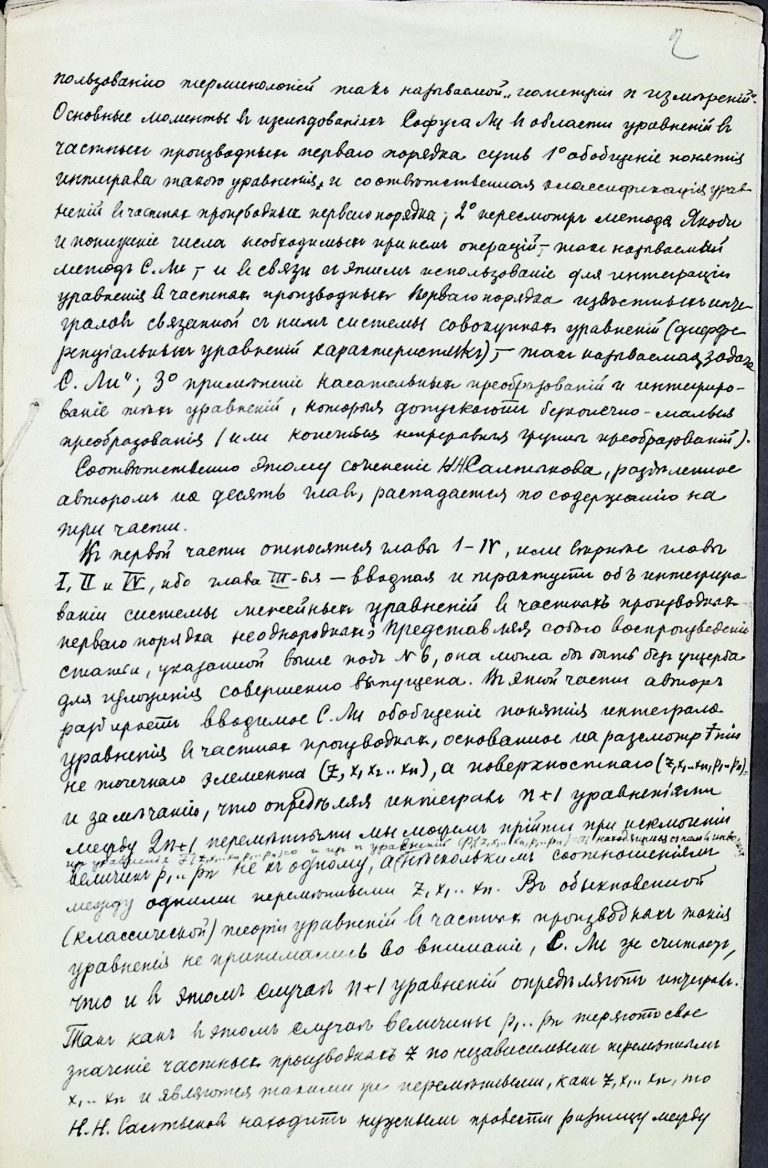 2
пользованію терминологій такъ называемой „геометріи n измѣреній“.
Основные моменты въ изслѣдованіяхъ Софуса Ли въ области уравненій въ
частныхъ производныхъ перваго порядка суть 1° обобщеніе понятія
интеграла такого уравненія, и соотвѣтственная классификація урав-
неній въ частныхъ производныхъ перваго порядка; 2° пересмотръ метода Якоби
и пониженіе числа необходимыхъ при немъ операцій, – такъ называемый
методъ С. Ли, – и въ связи съ этимъ использованіе для интеграціи
уравненія въ частныхъ производныхъ перваго порядка извѣстныхъ инте-
граловъ связанной съ нимъ системы совокупныхъ уравненій (диффе-
ренціальныхъ уравненій характеристикъ), – такъ называемая „задача
С. Ли“; 3° примѣненіе касательныхъ преобразованій и интегриро-
ваніе тѣхъ уравненій, которыя допускаютъ безконечно-малыя
преобразованія (или конечныя непрерывныя группы преобразованій).
Соотвѣтственно этому сочиненіе Н.Н. Салтыкова, раздѣленное
авторомъ на десять главъ, распадается по содержанію на
три части.
Къ первой части относятся главы I–IV, или вѣрнѣе главы
I, II и IV, ибо глава III-ья – вводная и трактуетъ объ интегриро-
ваніи системы линейныхъ уравненій въ частныхъ производныхъ
перваго порядка неоднородныхъ; представляя собою воспроизведеніе
статьи, указанной выше подъ № 6, она могла бы быть безъ ущерба
для изложенія совершенно выпущена. Въ этой части авторъ
разбираетъ вводимое С. Ли обобщеніе понятія интеграла
уравненія въ частныхъ производныхъ, основанное на разсмотрѣніи
не точечнаго элемента (z, x₁ x₂ .. xₙ), а поверхностнаго (z, x₁ .. xₙ, p₁ .. pₙ)
и замѣчаніи, что опредѣляя интегралъ n+1 уравненіями
между 2n+1 перемѣнными мы можемъ прійти при исключеніи
величинъ p₁ .. pₙ не къ одному, а нѣсколькимъ соотношеніямъ
между одними перемѣнными z, x₁ .. xₙ. Въ обыкновенной
(классической) теоріи уравненій въ частныхъ производныхъ такія
уравненія не принимались во вниманіе, С. Ли же считаетъ,
что и въ этомъ случаѣ n+1 уравненій опредѣляютъ интегралъ.
Такъ какъ въ этомъ случаѣ величины p₁ .. pₙ теряютъ свое
значеніе частныхъ производныхъ z по независимымъ перемѣннымъ
x₁ .. xₙ и являются такими же перемѣнными, какъ z, x₁ .. xₙ, то
Н. Н. Салтыковъ находитъ нужнымъ провести разницу между